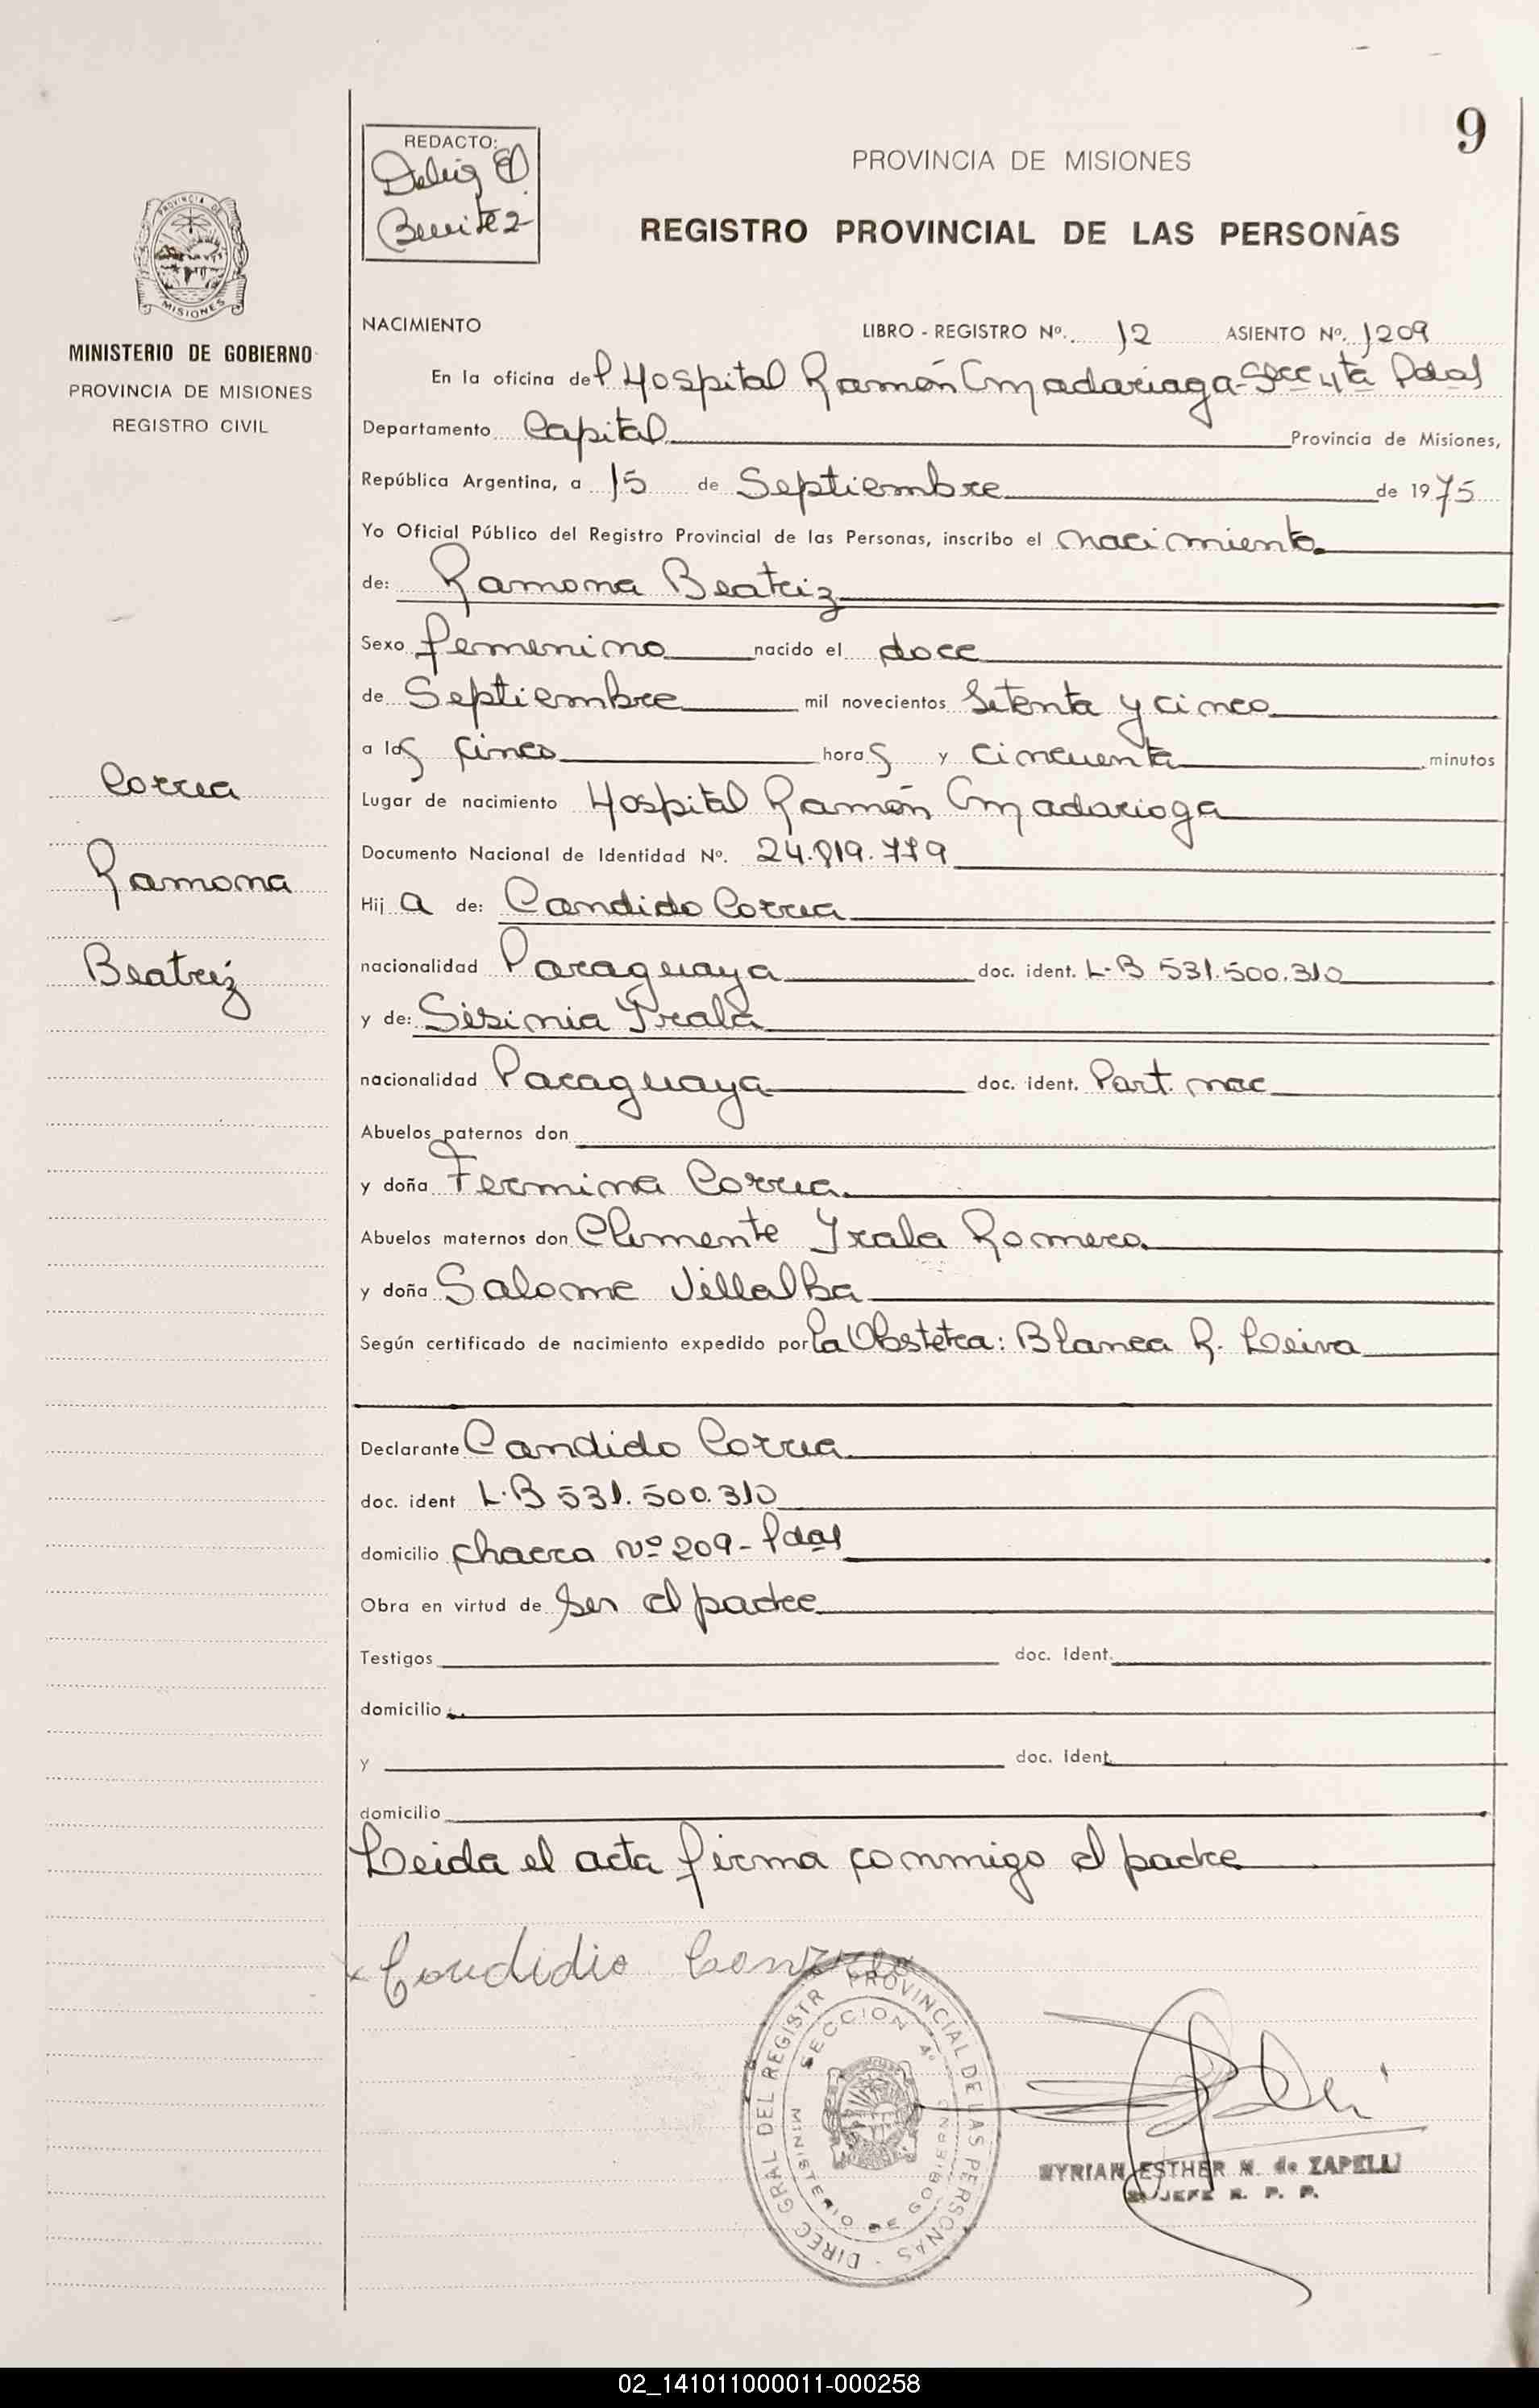 9
REDACTO:
Benitez
PROVINCIA DE MISIONES
REGISTRO PROVINCIAL DE LAS PERSONAS
PROVINCIA DE
MISIONES
MINISTERIO DE GOBIERNO
PROVINCIA DE MISIONES
REGISTRO CIVIL
NACIMIENTO LIBRO - REGISTRO Nº. 12 ASIENTO Nº. 1209
En la oficina del Hospital Ramón Madariaga - Secc 4ta Pdas
Departamento Capital Provincia de Misiones,
República Argentina, a 15 de Septiembre de 1975
Yo Oficial Público del Registro Provincial de las Personas, inscribo el nacimiento
de: Ramona Beatriz
Sexo femenino nacido el doce
de Septiembre mil novecientos Setenta y cinco
a las cinco horas y cincuenta minutos
Lugar de nacimiento Hospital Ramón Madariaga
Documento Nacional de Identidad Nº. 24.819.779
Hija de: Candido Correa
nacionalidad Paraguaya doc. ident. L.B 531.500.310
y de: Sisinia Irala
nacionalidad Paraguaya doc. ident. Part. nac
Abuelos paternos don
y doña Fermina Correa
Abuelos maternos don Clemente Irala Romero
y doña Salome Villalba
Según certificado de nacimiento expedido por la Obstetra: Blanca R. Leiva
Declarante Candido Correa
doc. ident L.B 531.500.310
domicilio chacra Nº 209 - Pdas
Obra en virtud de ser el padre
Testigos doc. Ident.
domicilio
y doc. Ident.
domicilio
Leida el acta firma conmigo el padre
Correa
Ramona
Beatriz
x Candidio
DIREC GRAL DEL REGISTR PROVINCIAL DE LAS PERSONAS
SECCION 4º
MINISTERIO DE GOBIERNO
MYRIAN ESTHER N. de ZAPELLI
JEFE R. P. P.
02_141011000011-000258